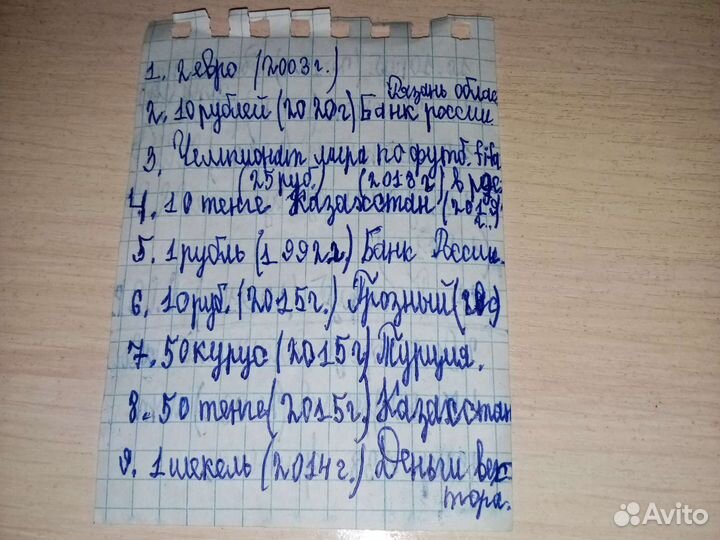 1. 2 евро (2003г.)
Рязань облас
2. 10 рублей (2020г) Банк россии.
3. Чемпионат мира по футб. fifa
(25 руб.) (2018г)
4. 10 тенге Казахстан (2019
г.)
5. 1 рубль (1992г.) Банк России.
6. 10 руб. (2015г.) Грозный
7. 50 курус (2015г) Турция.
8. 50 тенге (2015г.) Казахстан
9. 1 шекель (2014г.) Деньги век
тора.
Avito